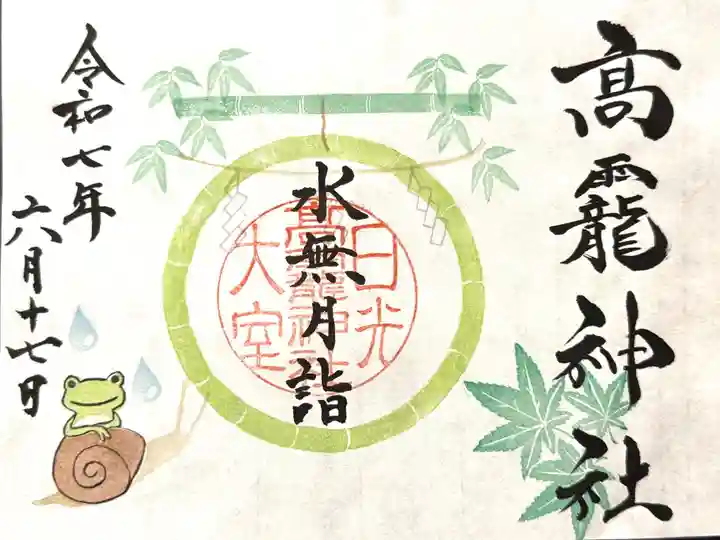 高龗神社
水無月詣
日光
高龗神社
大室
令和七年
六月十七日